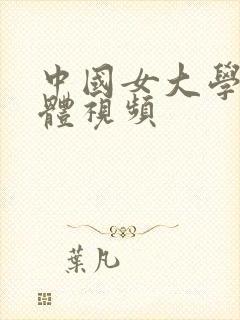 中國女大學
體視頻
葉凡